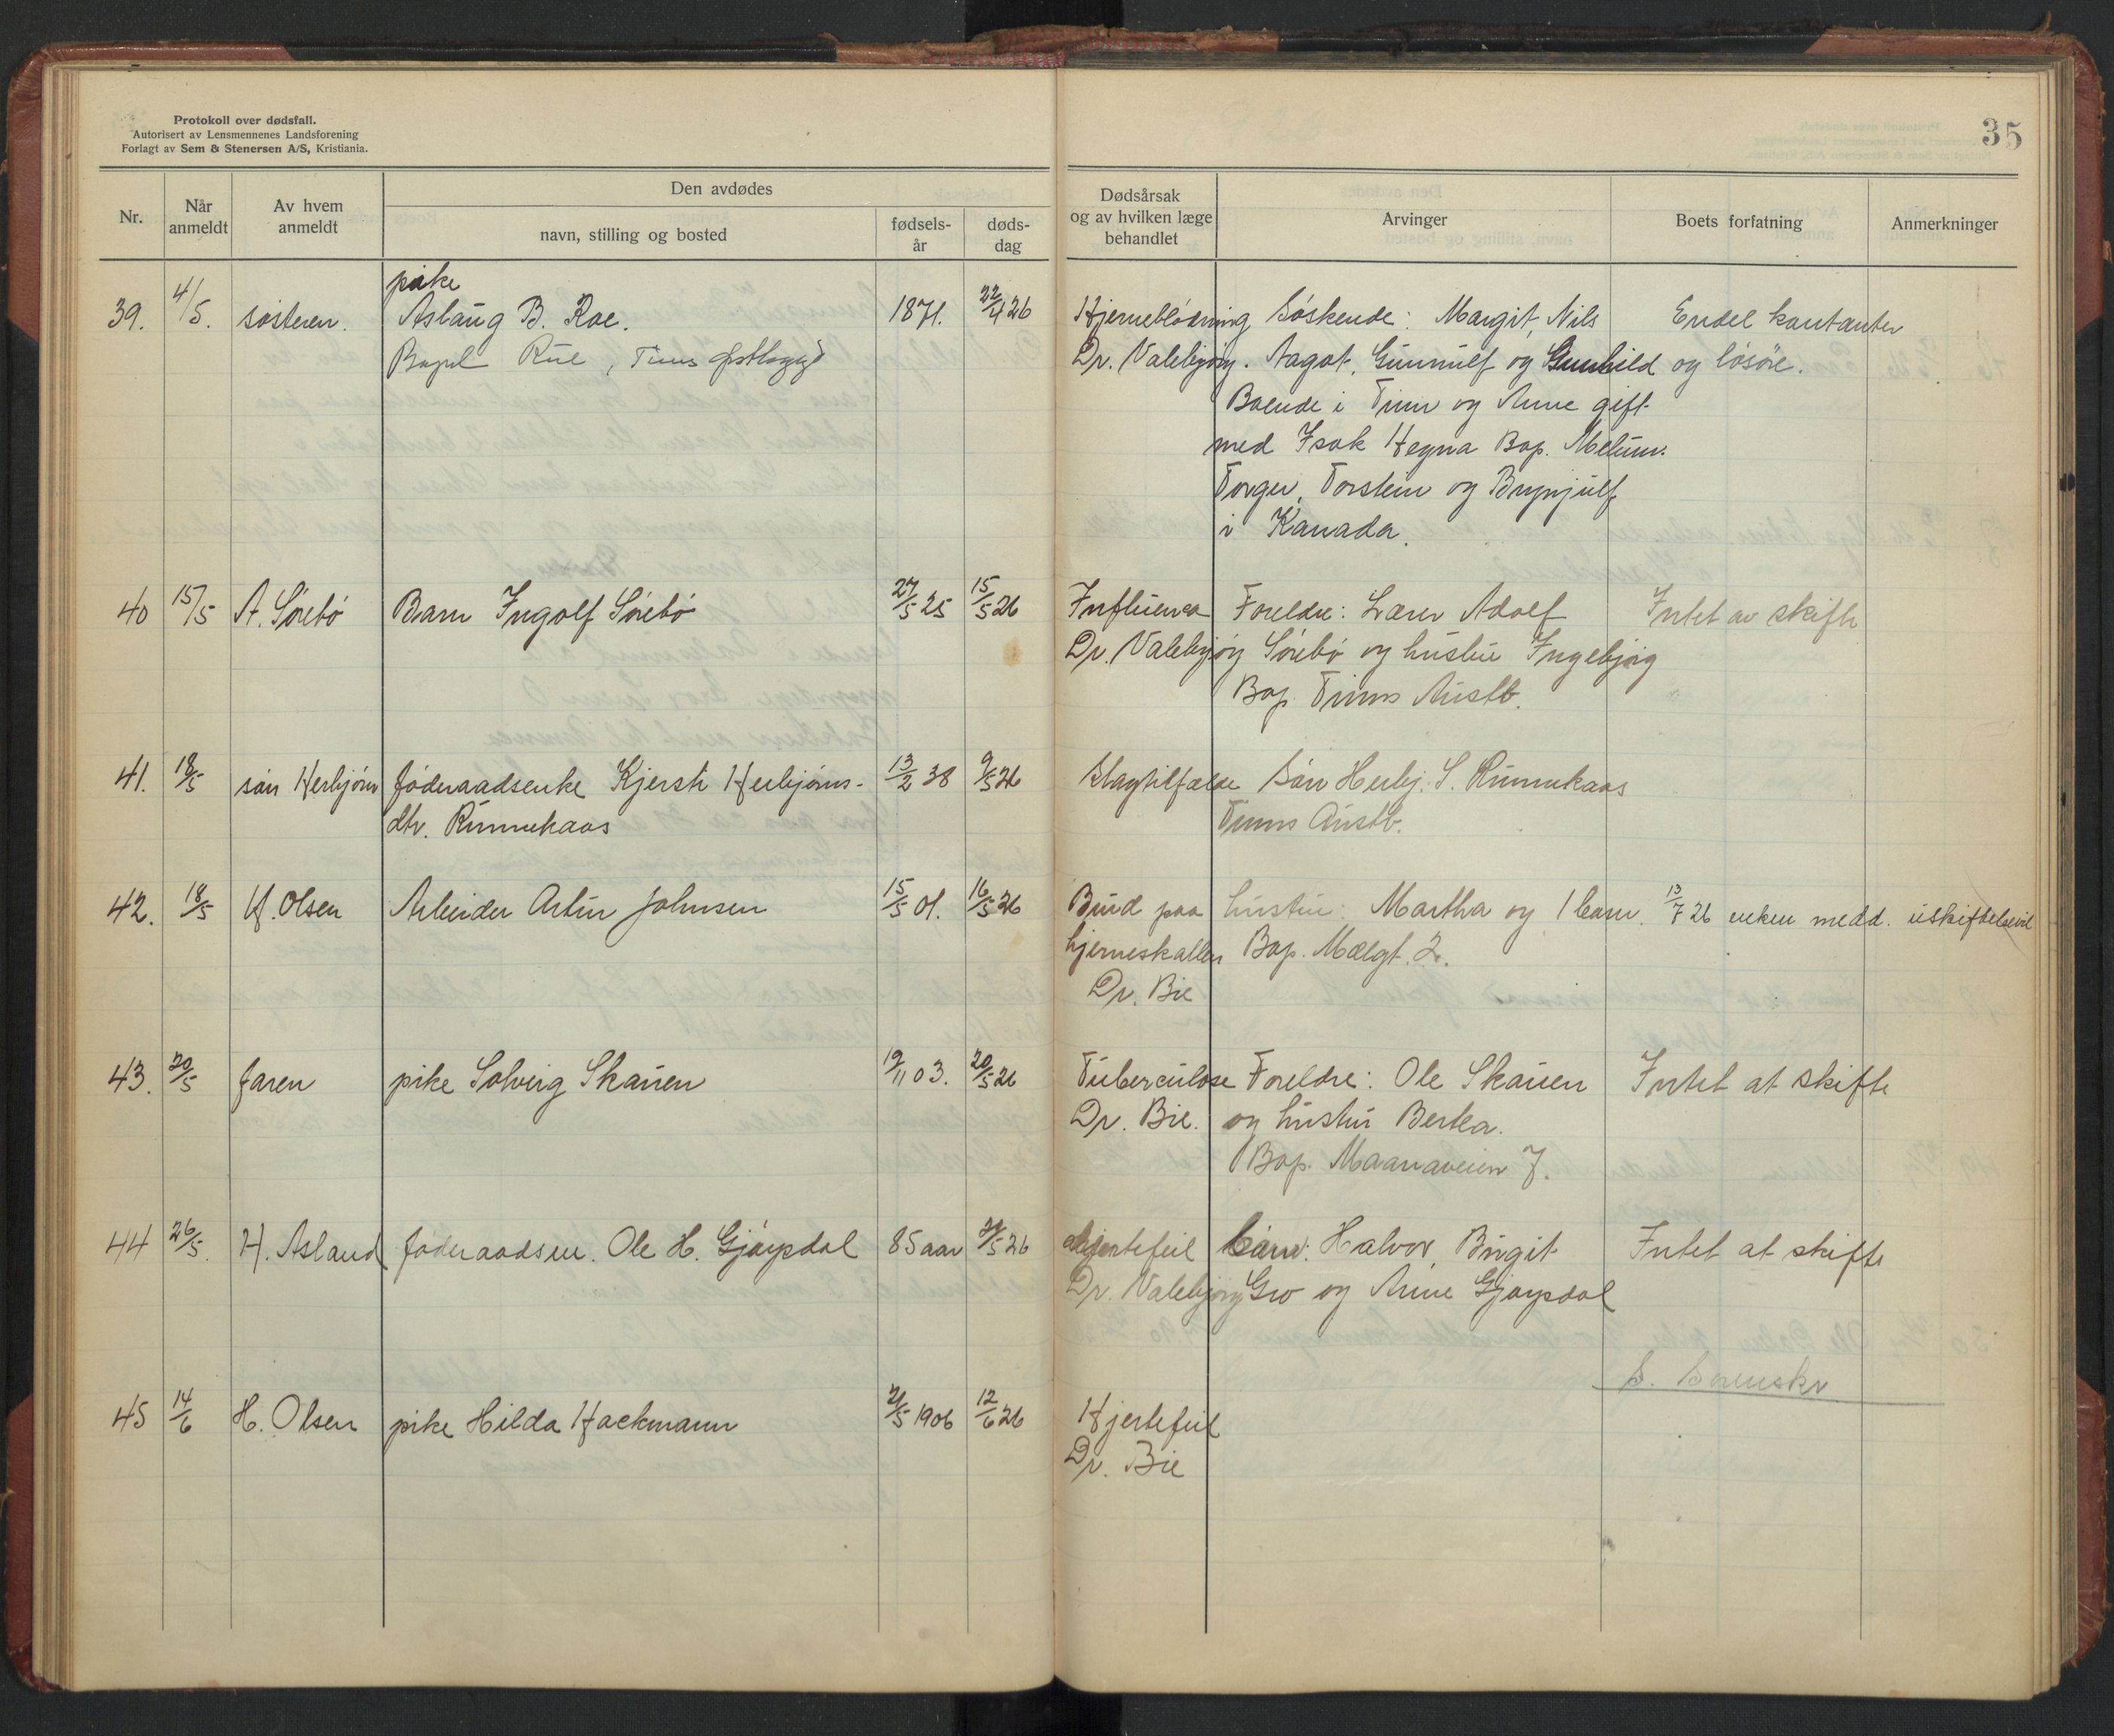 Protokoll over dødsfall.
Autorisert av Lensmennenes Landsforening
Forlagt av Sem & Stenersen A/S, Kristiania.
35
Nr.
Når anmeldt
Av hvem anmeldt
Den avdødes
navn, stilling og bosted
fødsels-år
døds-dag
Dødsårsak og av hvilken læge behandlet
Arvinger
Boets forfatning
Anmerkninger
pike
39. 4/5. søsteren. Aslaug B. Roe. 1871. 22/4 26 Hjerneblødning Søskende: Margit, Nils Endel kontanter
Rue, Tinns Dr. Valebjørg. Aagot, Gunnulf og Gunhild og løsøre.
Boende i Tinn og Anne gift
med Isak Hegna Bop. Melum.
Torger, Torstein og Brynjulf
i Kanada.
40 15/5 A. Sørebø Barn Ingolf Sørebø 27/5 25 15/5 26 Influenca Foreldre: Lærer Adolf Intet av skifte
Dr. Valebjørg Sørebø og hustru Ingebjørg
Bop. Tinns Austb.
41. 18/5 søn Herbjørn føderaadsenke Kjersti Herbjørns- 13/2 38 9/5 26 Slagtilfælde Søn Herbj. S. Runnekaas
dtr. Runnekaas Tinns Austb.
42. 18/5 H. Olsen Arbeider Artur Johnsen 15/5 01. 16/5 26 Brud paa hustru: Martha og 1 barn. 13/7 26 enken medd. uskiftebevil
hjerneskallen Bop. Mælgt. 2.
Dr. Bie
43. 20/5 faren pike Solveig Skauen 19/11 03. 20/5 26 Tuberculose Foreldre: Ole Skauen Intet at skifte
Dr. Bie. og hustru Bertea.
Bop. Maanaveien 7.
44 26/5. H. Asland føderaadsm. Ole H. Gjøysdal 85 aar 21/5 26 Hjertefeil barn: Halvor, Birgit Intet at skifte
Dr. Valebjørg Gro og Anne Gjøysdal
45 14/6 H. Olsen pike Hilda Hackmann 21/5 1906 12/6 26 Hjertefeil
Dr. Bie